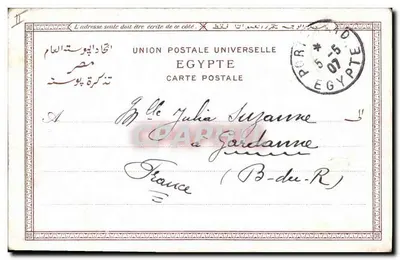 II
L'adresse seule doit être écrite de ce côté.
UNION POSTALE UNIVERSELLE
EGYPTE
CARTE POSTALE
اتحاد البوستة العام
مصر
تذكرة بوستة
PORT
5-5
07
EGYPTE
A
Mlle Julia Suzanne
à Gardanne
(B-du-R)
France